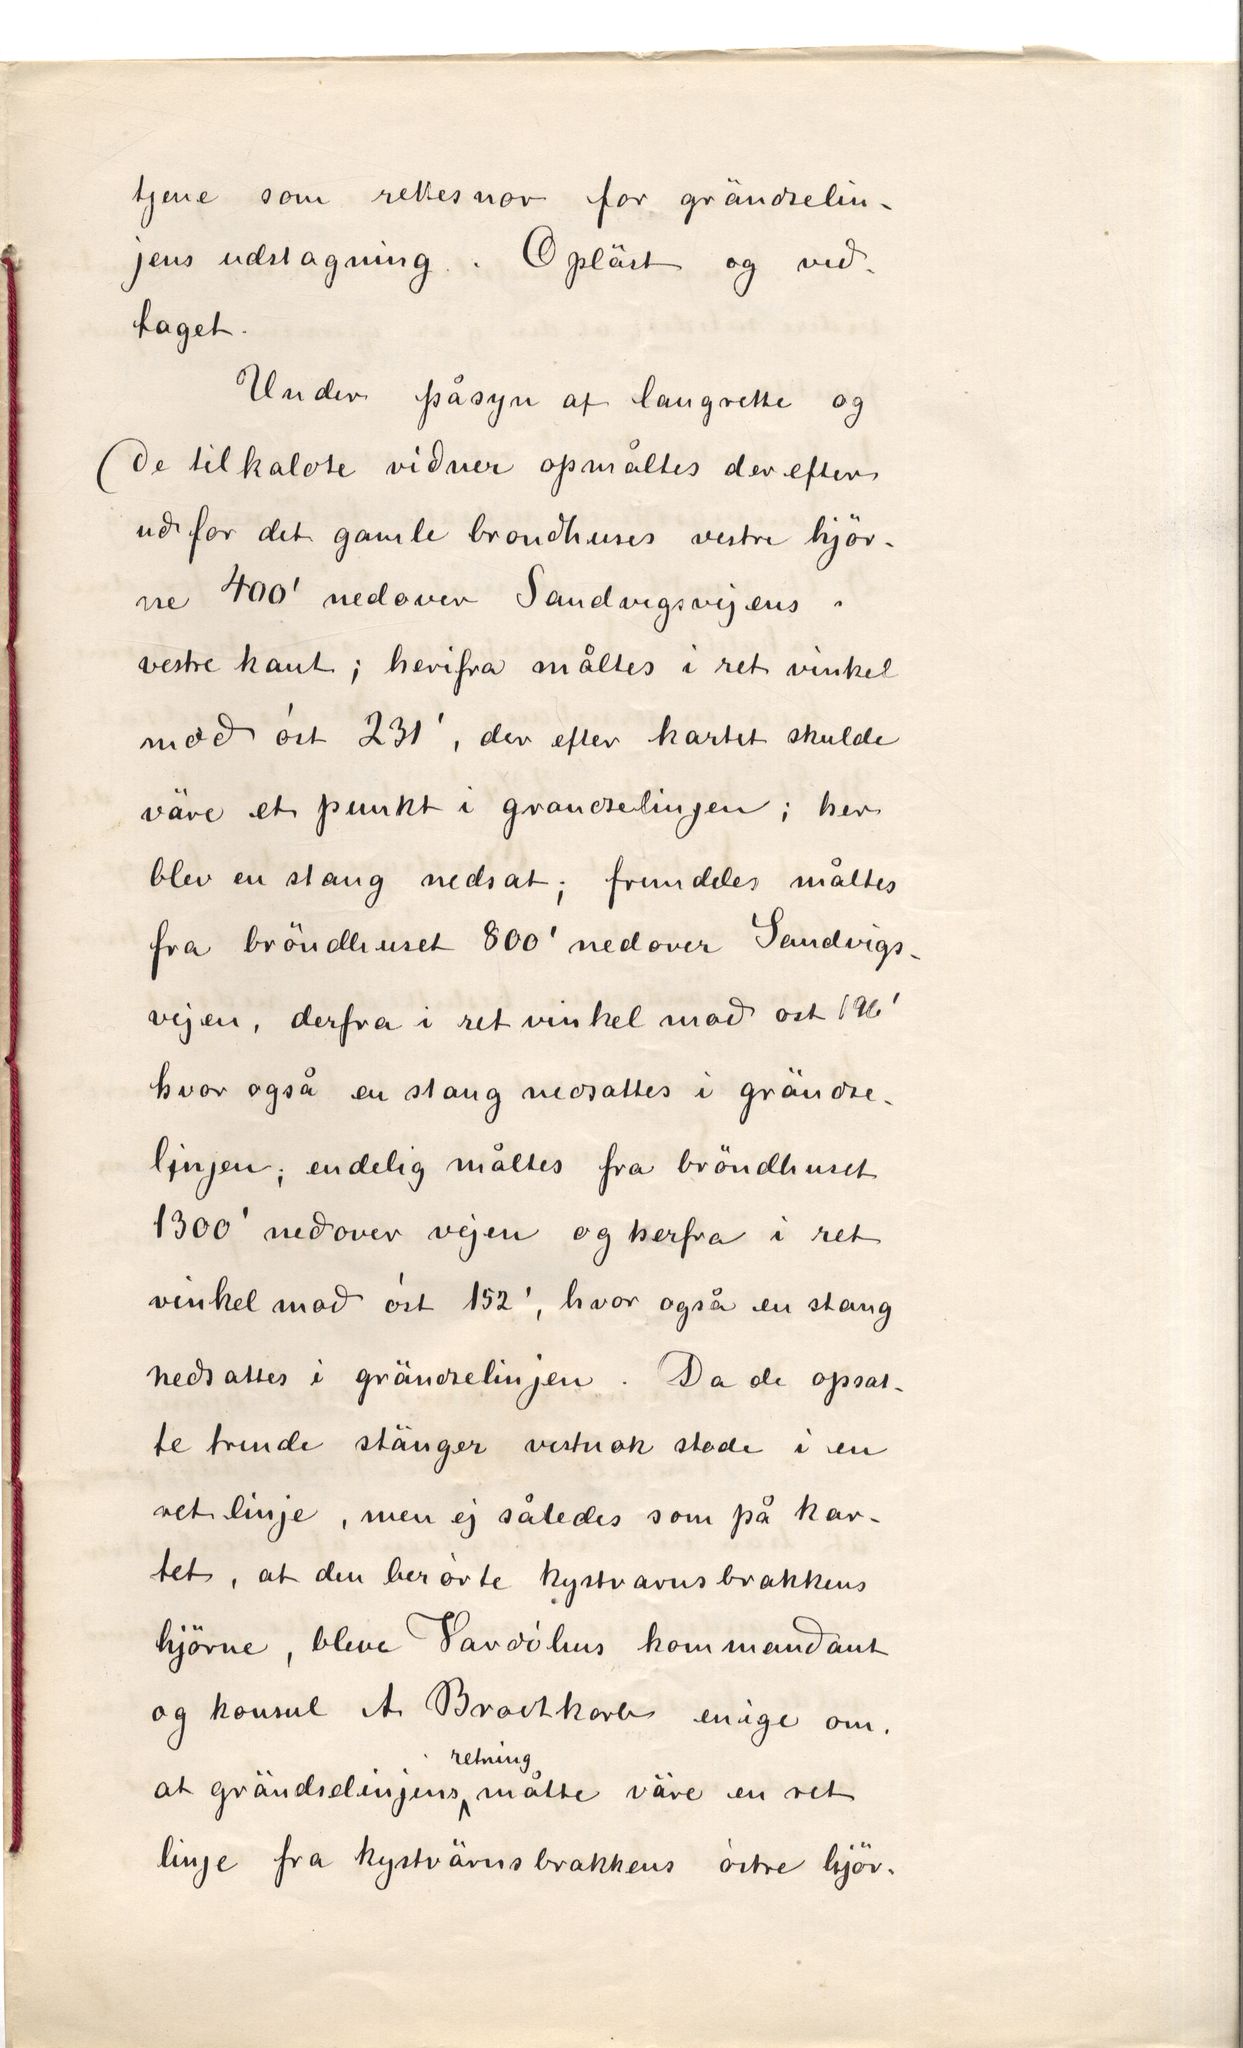 tjene som rettesnor for grändselin-
jens udstagning. Opläst og ved-
taget.
Under påsyn af laugrette og
de tilkaldte vidner opmåltes derefter
ud for det gamle brondhuses vestre hjör-
ne 400' nedover Sandvigsvejens
vestre kant; herifra måltes i ret vinkel
mod óst 231', der efter kartet skulde
väre et punkt i grandselinjen; her
blev en stang nedsat; fremdeles måltes
fra bröndhuset 800' nedover Sandvigs-
vejen, derfra i ret vinkel mod ost 196'
hvor også en stang nedsattes i grändse-
linjen; endelig måltes fra bröndhuset
1300' nedover vejen og herfra i ret
vinkel mod óst 152', hvor også en stang
nedsattes i grändselinjen. Da de opsat-
te trende stänger vistnok stode i en
ret linje, men ej således som på kar-
tet, at den berórte kystvarnsbrakkens
hjörne, bleve Vardóhus kommandant
og konsul A Brodtkorb enige om,
at grändselinjens retning måtte väre en ret
linje fra kystvärnsbrakkens óstre hjör-